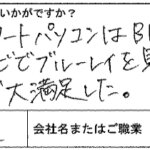 いかがですか？
ートパソコンはB
ごでブルーレイを見
大満足した。
会社名またはご職業